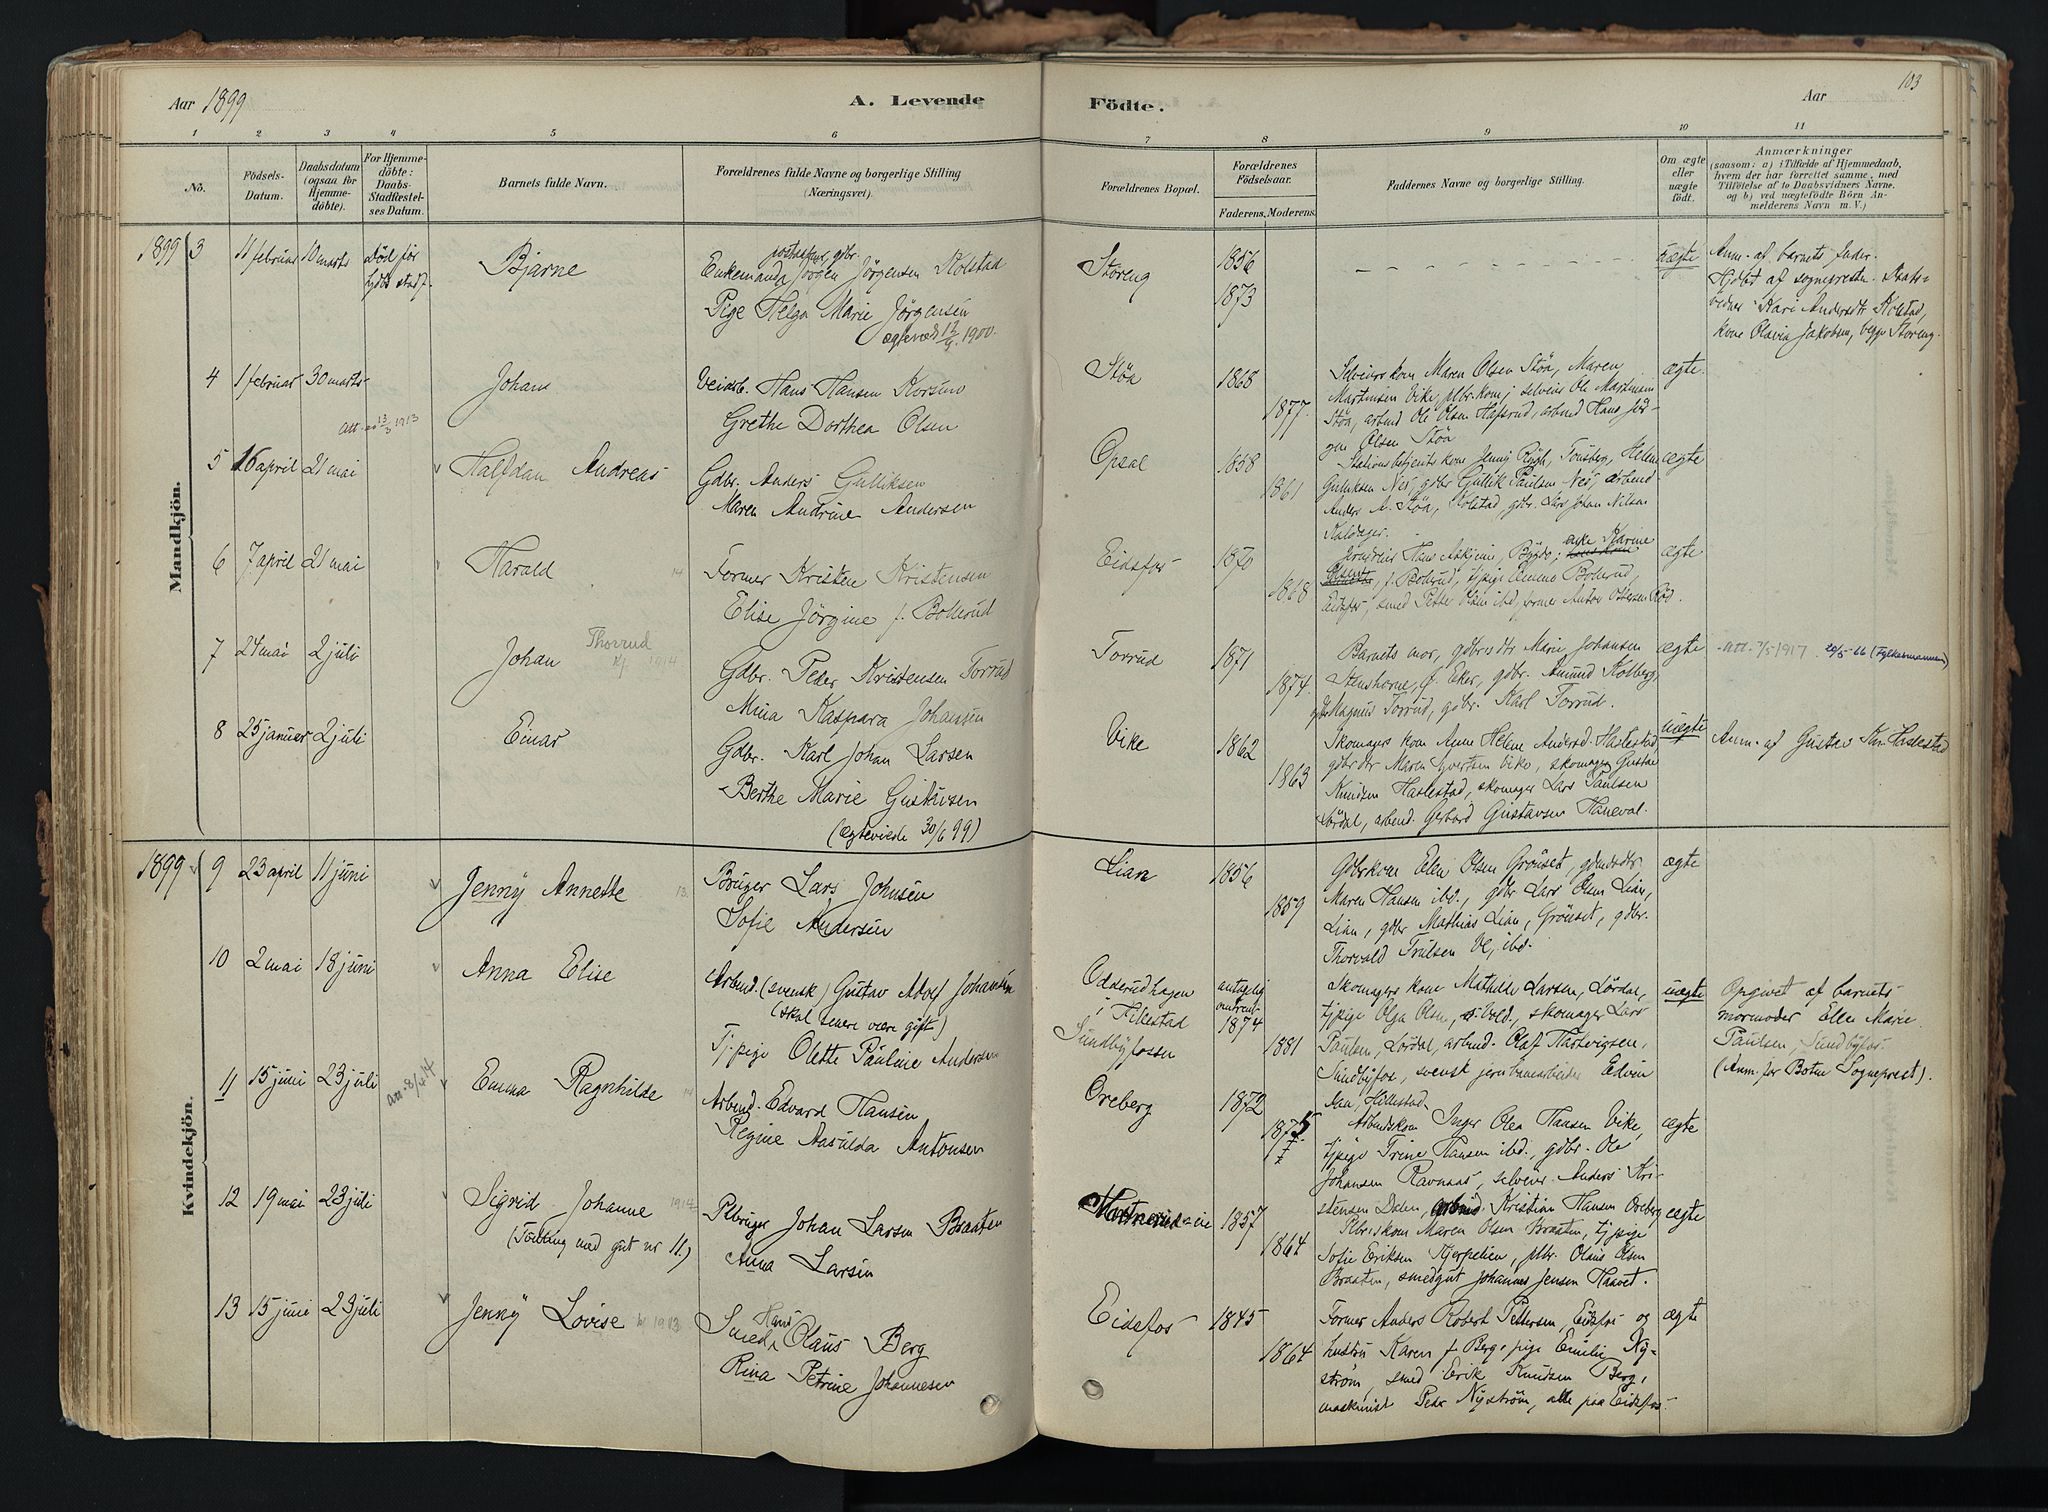 Aar 1899
A. Levende
Födte.
Aar
103
1 2 3 4 5 6 7 8 9 10 11
No.
Födsels-Datum.
Daabsdatum (ogsaa for Hjemmedöbte).
For Hjemmedöbte: Daabs-Stadfæstelses Datum.
Barnets fulde Navn.
Forældrenes fulde Navne og borgerlige Stilling (Næringsvei).
Forældrenes Bopæl.
Forældrenes Födselsaar.
Faderens. Moderens.
Faddernes Navne og borgerlige Stilling.
Om ægte eller uægte födt.
Anmærkninger
(saasom: a) i Tilfælde af Hjemmedaab, hvem der har forrettet samme, med Tilföielse af to Daabsvidners Navne, og b) ved uægtefödte Börn Anmelderens Navn m. V.)
Mandkjön.
1899 3 11 februar 10 marts Död før
Bjarne
Enkemand Jörgen Jörgensen Kolstad
Pige Helga Marie Jörgensen
ægteviet 1900.
Storeng 1856
1873
uægte
Anm. af barnets fader.
Hjdbt af sognepresten. Daabs-
vidner Kari Andersdtr Kolstad,
kone Olavia Jakobsen, begge Storeng.
4 1 februar 30 marts
Johan
Veiarb. Hans Hansen Korsmo
Grethe Dorthea Olsen
Stöa 1868
1877.
Selveierskone Maren Olsen Stöa, Maren
Martinsen Vike, plbr.kone, selveier Ole Martinsen
Stöa, arbmd Ole Olsen Hafsrud, arbmd Hans Jör-
gen Olsen Stöa
ægte.
5 16 april 21 mai
Halfdan Andreas
Gdbr. Anders Gulliksen
Maren Andrine Andersen
Opsal 1858
1861
Stationsbetjents kone Jenny Rygh, Tönsberg, Helene
Gulliksen Nes, gdbr Gullik Paulsen Nes, arbmd
Anders A. Stöa, Kolstad, gdbr. Lars Johan Nilsen
Kaldager.
ægte
6 7 april 21 mai
Harald 14
Former Kristen Kristensen
Elise Jörgine f. Bollerud
Eidsfos 1870
1868
enke Karine
f. Bollerud, tjpige Emma Bollerud,
Eidsfos, smed Petter Olsen ibd, former Anton Ottersen Röd.
ægte
7 24 mai 2 juli
Johan Thorrud
1914
Gdbr. Peder Kristensen Torrud
Mina Kaspara Johansen
Torrud 1871
1874.
Barnets mor, gdbrsdtr Marie Johansen
Stenshorne, Ø. Eker, gdbr. Amund Kolberg,
gdbr Magnus Torrud, gdbr. Karl Torrud.
ægte
att. 7/5 1917 20/5-66 (Fylkesmannen)
8 25 januar 2 juli
Einar
Gdbr. Karl Johan Larsen
Berthe Marie Gustavsen
(ægteviede 30/6 99)
Vike 1862
1863
Skomagers kone Anne Helene Andersd. Haslestad,
gdbrdtr Maren Syvertsen Vike, skomager Gustav
Knudsen Haslestad, skomager Lars Paulsen
Lördal, arbmd. Gerhard Gustavsen Haneval.
uægte
Anm. af Gustav Kn. Haslestad
Kvindekjön.
1899 9 23 april 11 juni
Jenny Annette 13
Bruger Lars Johnsen
Sofie Andersen
Lian 1856
1859
Gdbrkone Elen Olsen Grönset, gdmdsdtr
Maren Hansen ibd., gdbr Lars Olsen Lian,
Lian, gdbr Mathias Lian, Grönset, gdbr.
Thorvald Trulsen Ve, ibd.
ægte
10 2 mai 18 juni
Anna Elise
Arbmd. (svensk) Gustav Adolf Johansen
(skal senere være gift)
Tj.pige Olette Pauline Andersen
Odderudhagen
i Hillestad
Sundbyfossen
antagelig
omtrent
1874
1881
Skomagers kone Mathilde Larsen, Lördal,
tjpige Olga Olsen, skomager Lars
Paulsen, Lördal, arbmd. Olaf Hartvigsen,
Sundbyfos, svensk jernbanearbeider Edvin
Aan, Hillestad
uægte
Opgivet af barnets
mormoder Ellen Marie
Paulsen, Sundbyfos
(Anm. for Botne Sogneprest).
11 15 juni 23 juli
Emma Ragnhilde 14
Arbmd. Edvard Hansen
Regine Aasulda Antonsen
Oreberg 1872
1875
Arbmdskone Inger Olea Hansen Vike,
tjpige Trine Hansen ibd., gdbr. Ole
Johansen Ravnaas, selveier Anders Kri-
stensen Dalen, arbmd. Kristian Hansen Oreberg
ægte
12 19 mai 23 juli
Sigrid Johanne 1914
(Tvilling med gut nr 11.)
Plbruger Johan Larsen Braaten
Anna Larsen
1857
1864
Plbrskone Maren Olsen Braaten, tjpige
Sofie Eriksen Hjerpetien, plbr. Olaus Olsen
Braaten, smedgut Johannes Jensen Haavet.
ægte
13 15 juni 23 juli
Jenny Lovise 1913
Smed Hans Olaus Berg
Rina Petrine Johannesen
Eidsfos 1845
1864
Former Anders Robert Pettersen, Eidsfos og
hustru Karen f. Berg, pige Emilie Ny-
ström, smed Erik Knudsen Berg,
maskinist Peder Nyström, alle paa Eidsfos.
ægte